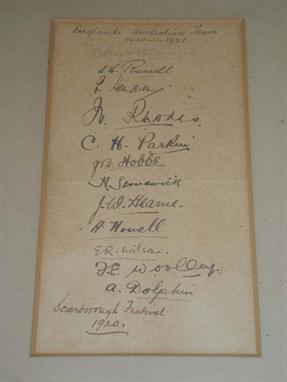 Englands Australian Team
1920 — 1921.
Russell
W. Rhodes.
C. H. Parkin
J B Hobbs
H Strudwick
J. W. Hearne.
H. Howell
E.R. Wilson.
F. E. Woolley.
A. Dolphin
Scarborough Festival
1920.